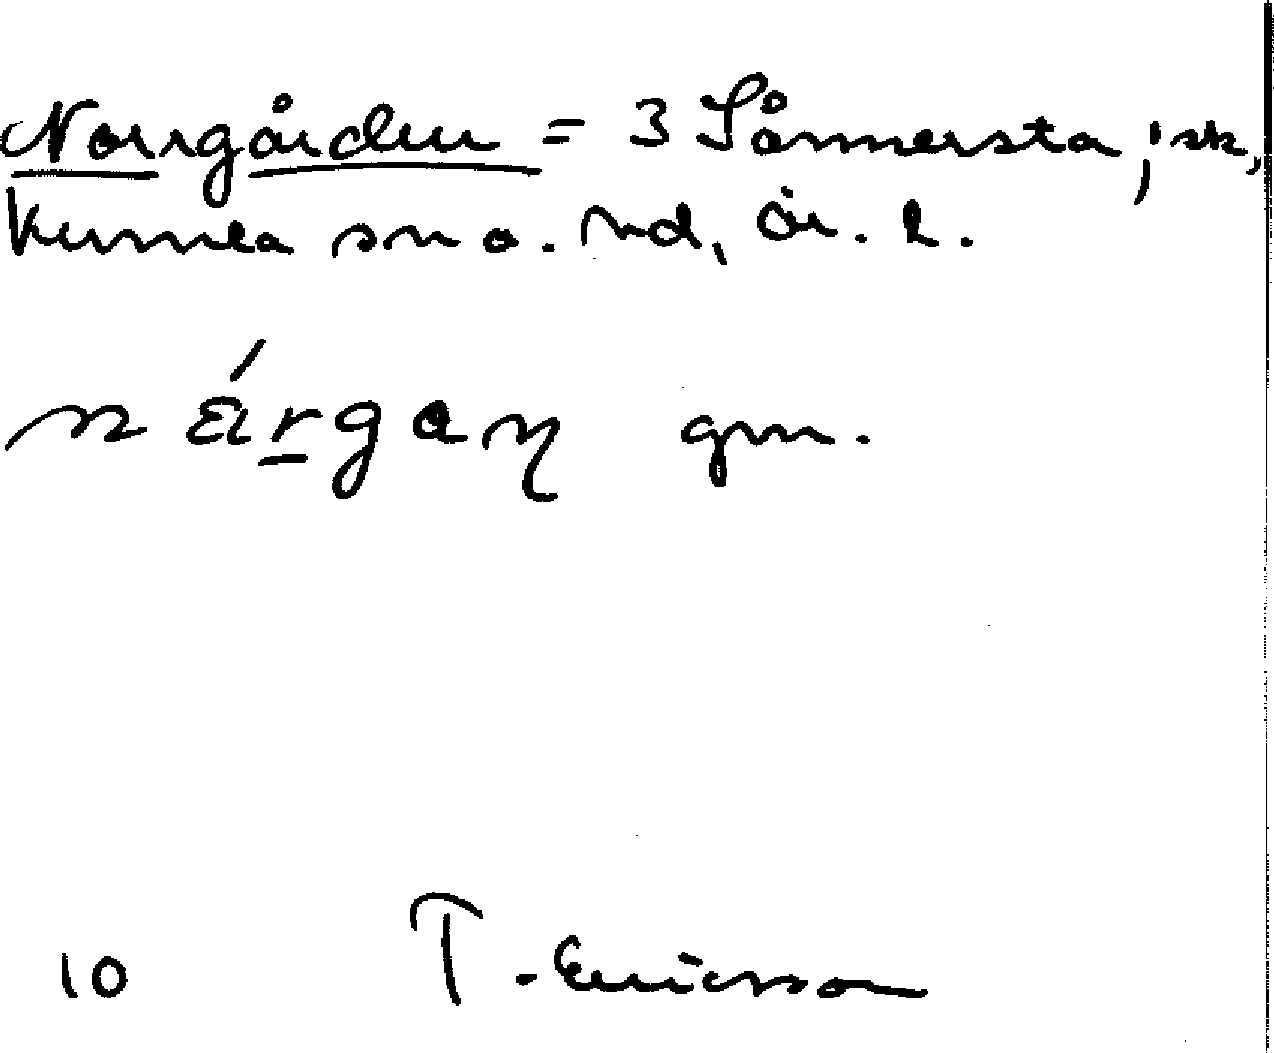 Norrgården = 3 Sånnersta, 1 sk,
Kumla sn o. hd, Ör. l.
gm.
10 T. Ericsson